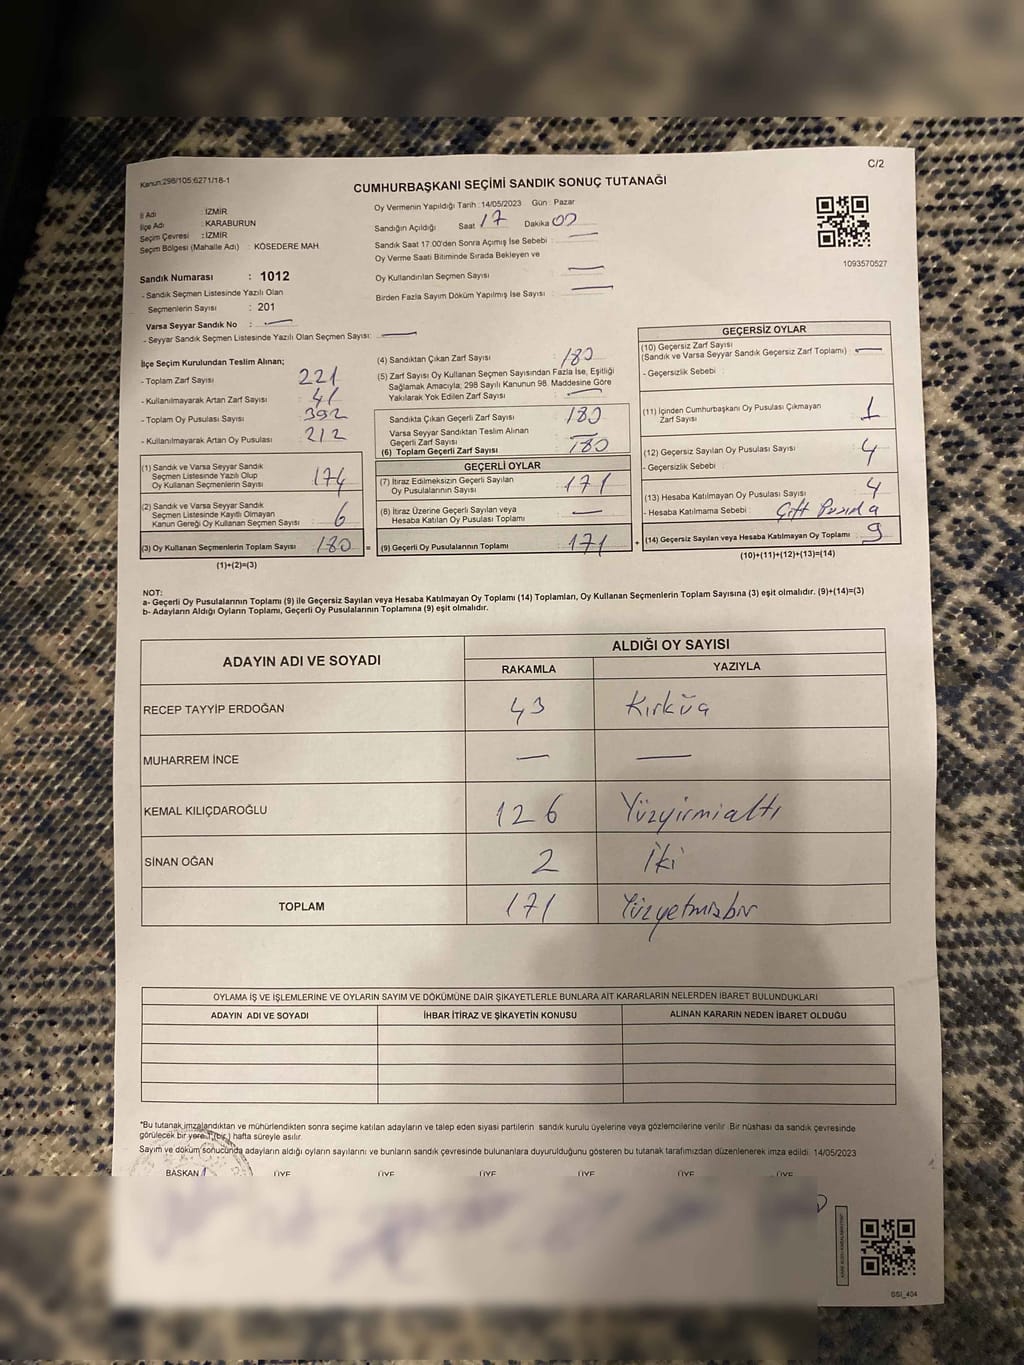 Kanun:298/105;6271/18-1
C/2
CUMHURBAŞKANI SEÇİMİ SANDIK SONUÇ TUTANAĞI
İl Adı : İZMİR
İlçe Adı : KARABURUN
Seçim Çevresi : İZMİR
Seçim Bölgesi (Mahalle Adı) : KÖSEDERE MAH.
Sandık Numarası : 1012
- Sandık Seçmen Listesinde Yazılı Olan
Seçmenlerin Sayısı : 201
Varsa Seyyar Sandık No : —
- Seyyar Sandık Seçmen Listesinde Yazılı Olan Seçmen Sayısı: —
Oy Vermenin Yapıldığı Tarih : 14/05/2023 Gün : Pazar
Sandığın Açıldığı Saat 17 Dakika 00
Sandık Saat 17.00'den Sonra Açılmış İse Sebebi : —
Oy Verme Saati Bitiminde Sırada Bekleyen ve
Oy Kullandırılan Seçmen Sayısı —
Birden Fazla Sayım Döküm Yapılmış İse Sayısı : —
1093570527
İlçe Seçim Kurulundan Teslim Alınan;
- Toplam Zarf Sayısı 221
- Kullanılmayarak Artan Zarf Sayısı 41
- Toplam Oy Pusulası Sayısı 392
- Kullanılmayarak Artan Oy Pusulası 212
(1) Sandık ve Varsa Seyyar Sandık
Seçmen Listesinde Yazılı Olup
Oy Kullanan Seçmenlerin Sayısı 174
(2) Sandık ve Varsa Seyyar Sandık
Seçmen Listesinde Kayıtlı Olmayan
Kanun Gereği Oy Kullanan Seçmen Sayısı 6
(3) Oy Kullanan Seçmenlerin Toplam Sayısı 180 =
(1)+(2)=(3)
(4) Sandıktan Çıkan Zarf Sayısı 180
(5) Zarf Sayısı Oy Kullanan Seçmen Sayısından Fazla İse, Eşitliği
Sağlamak Amacıyla; 298 Sayılı Kanunun 98. Maddesine Göre
Yakılarak Yok Edilen Zarf Sayısı —
Sandıkta Çıkan Geçerli Zarf Sayısı 180
Varsa Seyyar Sandıktan Teslim Alınan
Geçerli Zarf Sayısı —
(6) Toplam Geçerli Zarf Sayısı 180
GEÇERLİ OYLAR
(7) İtiraz Edilmeksizin Geçerli Sayılan
Oy Pusulalarının Sayısı 171
(8) İtiraz Üzerine Geçerli Sayılan veya
Hesaba Katılan Oy Pusulası Toplamı —
(9) Geçerli Oy Pusulalarının Toplamı 171 +
GEÇERSİZ OYLAR
(10) Geçersiz Zarf Sayısı
(Sandık ve Varsa Seyyar Sandık Geçersiz Zarf Toplamı) —
- Geçersizlik Sebebi :
(11) İçinden Cumhurbaşkanı Oy Pusulası Çıkmayan
Zarf Sayısı 1
(12) Geçersiz Sayılan Oy Pusulası Sayısı 4
- Geçersizlik Sebebi :
(13) Hesaba Katılmayan Oy Pusulası Sayısı 4
- Hesaba Katılmama Sebebi : Çift
(14) Geçersiz Sayılan veya Hesaba Katılmayan Oy Toplamı 9
(10)+(11)+(12)+(13)=(14)
NOT:
a- Geçerli Oy Pusulalarının Toplamı (9) ile Geçersiz Sayılan veya Hesaba Katılmayan Oy Toplamı (14) Toplamları, Oy Kullanan Seçmenlerin Toplam Sayısına (3) eşit olmalıdır. (9)+(14)=(3)
b- Adayların Aldığı Oyların Toplamı, Geçerli Oy Pusulalarının Toplamına (9) eşit olmalıdır.
ADAYIN ADI VE SOYADI
ALDIĞI OY SAYISI
RAKAMLA YAZIYLA
RECEP TAYYİP ERDOĞAN 43 Kırküç
MUHARREM İNCE — —
KEMAL KILIÇDAROĞLU 126 Yüzyirmialtı
SİNAN OĞAN 2 İki
TOPLAM 171 Yüzyetmişbir
OYLAMA İŞ VE İŞLEMLERİNE VE OYLARIN SAYIM VE DÖKÜMÜNE DAİR ŞİKAYETLERLE BUNLARA AİT KARARLARIN NELERDEN İBARET BULUNDUKLARI
ADAYIN ADI VE SOYADI İHBAR İTİRAZ VE ŞİKAYETİN KONUSU ALINAN KARARIN NEDEN İBARET OLDUĞU
*Bu tutanak,imzalandıktan ve mühürlendikten sonra seçime katılan adayların ve talep eden siyasi partilerin sandık kurulu üyelerine veya gözlemcilerine verilir. Bir nüshası da sandık çevresinde
görülecek bir yere 1 (bir ) hafta süreyle asılır.
Sayım ve döküm sonucunda adayların aldığı oyların sayılarını ve bunların sandık çevresinde bulunanlara duyurulduğunu gösteren bu tutanak tarafımızdan düzenlenerek imza edildi. 14/05/2023
BAŞKAN ÜYE ÜYE ÜYE ÜYE ÜYE ÜYE